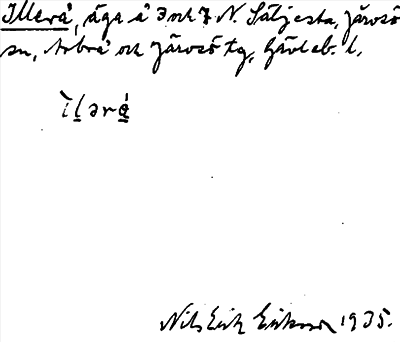 Illerå, äga å 3 och 7 N. Sätjesta, Järvsö
sn, Arbrå och Järvsö tg, Gävleb. l.
Nils Erik Eriksson 1935.